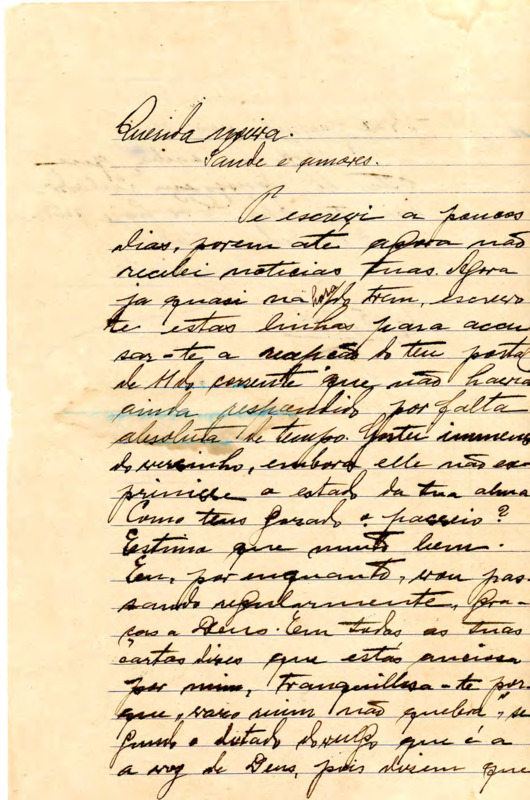 Querida noiva.
Saude e amores.
Te escrevi a poucos
dias, porem até agora não
recebi noticias tuas. Agora
ja quasi na hora do trem, escrevo
te estas linhas para accu
sar-te a recepção do teu postal
de 11 do corrente que não havia
ainda respondido por falta
absoluta de tempo. Gostei immenso
do versinho, embora elle não ex
primisse o estado da tua alma
Como tens gozado o passeio?
Estimo que muito bem.
Eu, por enquanto, vou pas
sando regularmente, gra-
ças a Deus. Em todas as tuas
cartas dizes que estás anciosa
por mim, tranquillisa-te por-
que, "vaso ruim não quebra", se
gundo o ditado do vulgo que é a
a voz de Deus, pois dizem que